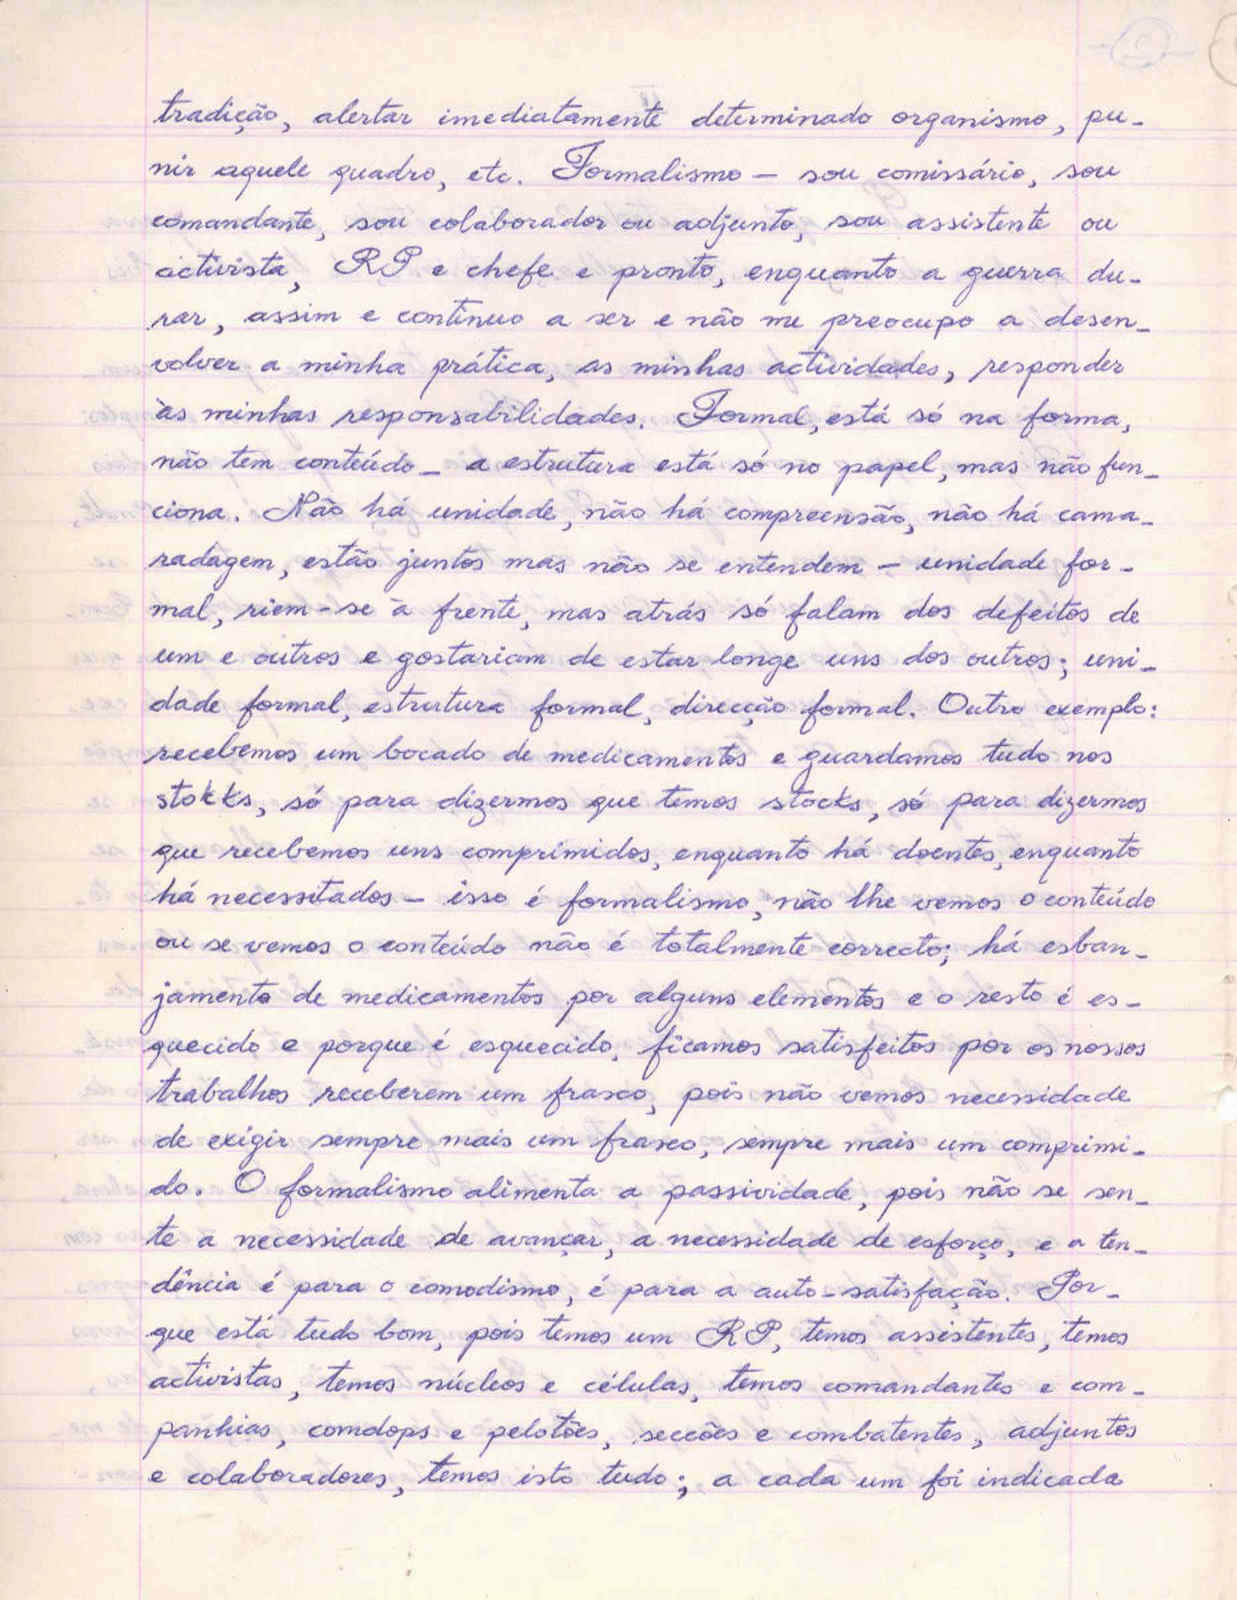 tradição, alertar imediatamente determinado organismo, pu-
nir aquele quadro, etc. Formalismo - sou comissário, sou
comandante, sou colaborador ou adjunto, sou assistente ou
activista, RP e chefe e pronto, enquanto a guerra du-
rar, assim e continuo a ser e não me preocupo a desen-
volver a minha prática, as minhas actividades, responder
às minhas responsabilidades. Formal, está só na forma,
não tem conteúdo - a estrutura está só no papel, mas não fun-
ciona. Não há unidade, não há compreensão, não há cama-
radagem, estão juntos mas não se entendem - unidade for-
mal, riem-se à frente, mas atrás só falam dos defeitos de
um e outros e gostariam de estar longe uns dos outros; uni-
dade formal, estrutura formal, direcção formal. Outro exemplo:
recebemos um bocado de medicamentos e guardamos tudo nos
stokks, só para dizermos que temos stocks, só para dizermos
que recebemos uns comprimidos, enquanto há doentes, enquanto
há necessitados - isso é formalismo, não lhe vemos o conteúdo
ou se vemos o conteúdo não é totalmente correcto; há esban-
jamento de medicamentos por alguns elementos e o resto é es-
quecido e porque é esquecido, ficamos satisfeitos por os nossos
trabalhos receberem um frasco, pois não vemos necessidade
de exigir sempre mais um frasco, sempre mais um comprimi-
do. O formalismo alimenta a passividade, pois não se sen-
te a necessidade de avançar, a necessidade de esforço, e a ten-
dência é para o comodismo, é para a auto-satisfação. Por-
que está tudo bom, pois temos um RP, temos assistentes, temos
activistas, temos núcleos e células, temos comandantes e com-
panhias, comdops e pelotões, secções e combatentes, adjuntos
e colaboradores, temos isto tudo; a cada um foi indicada